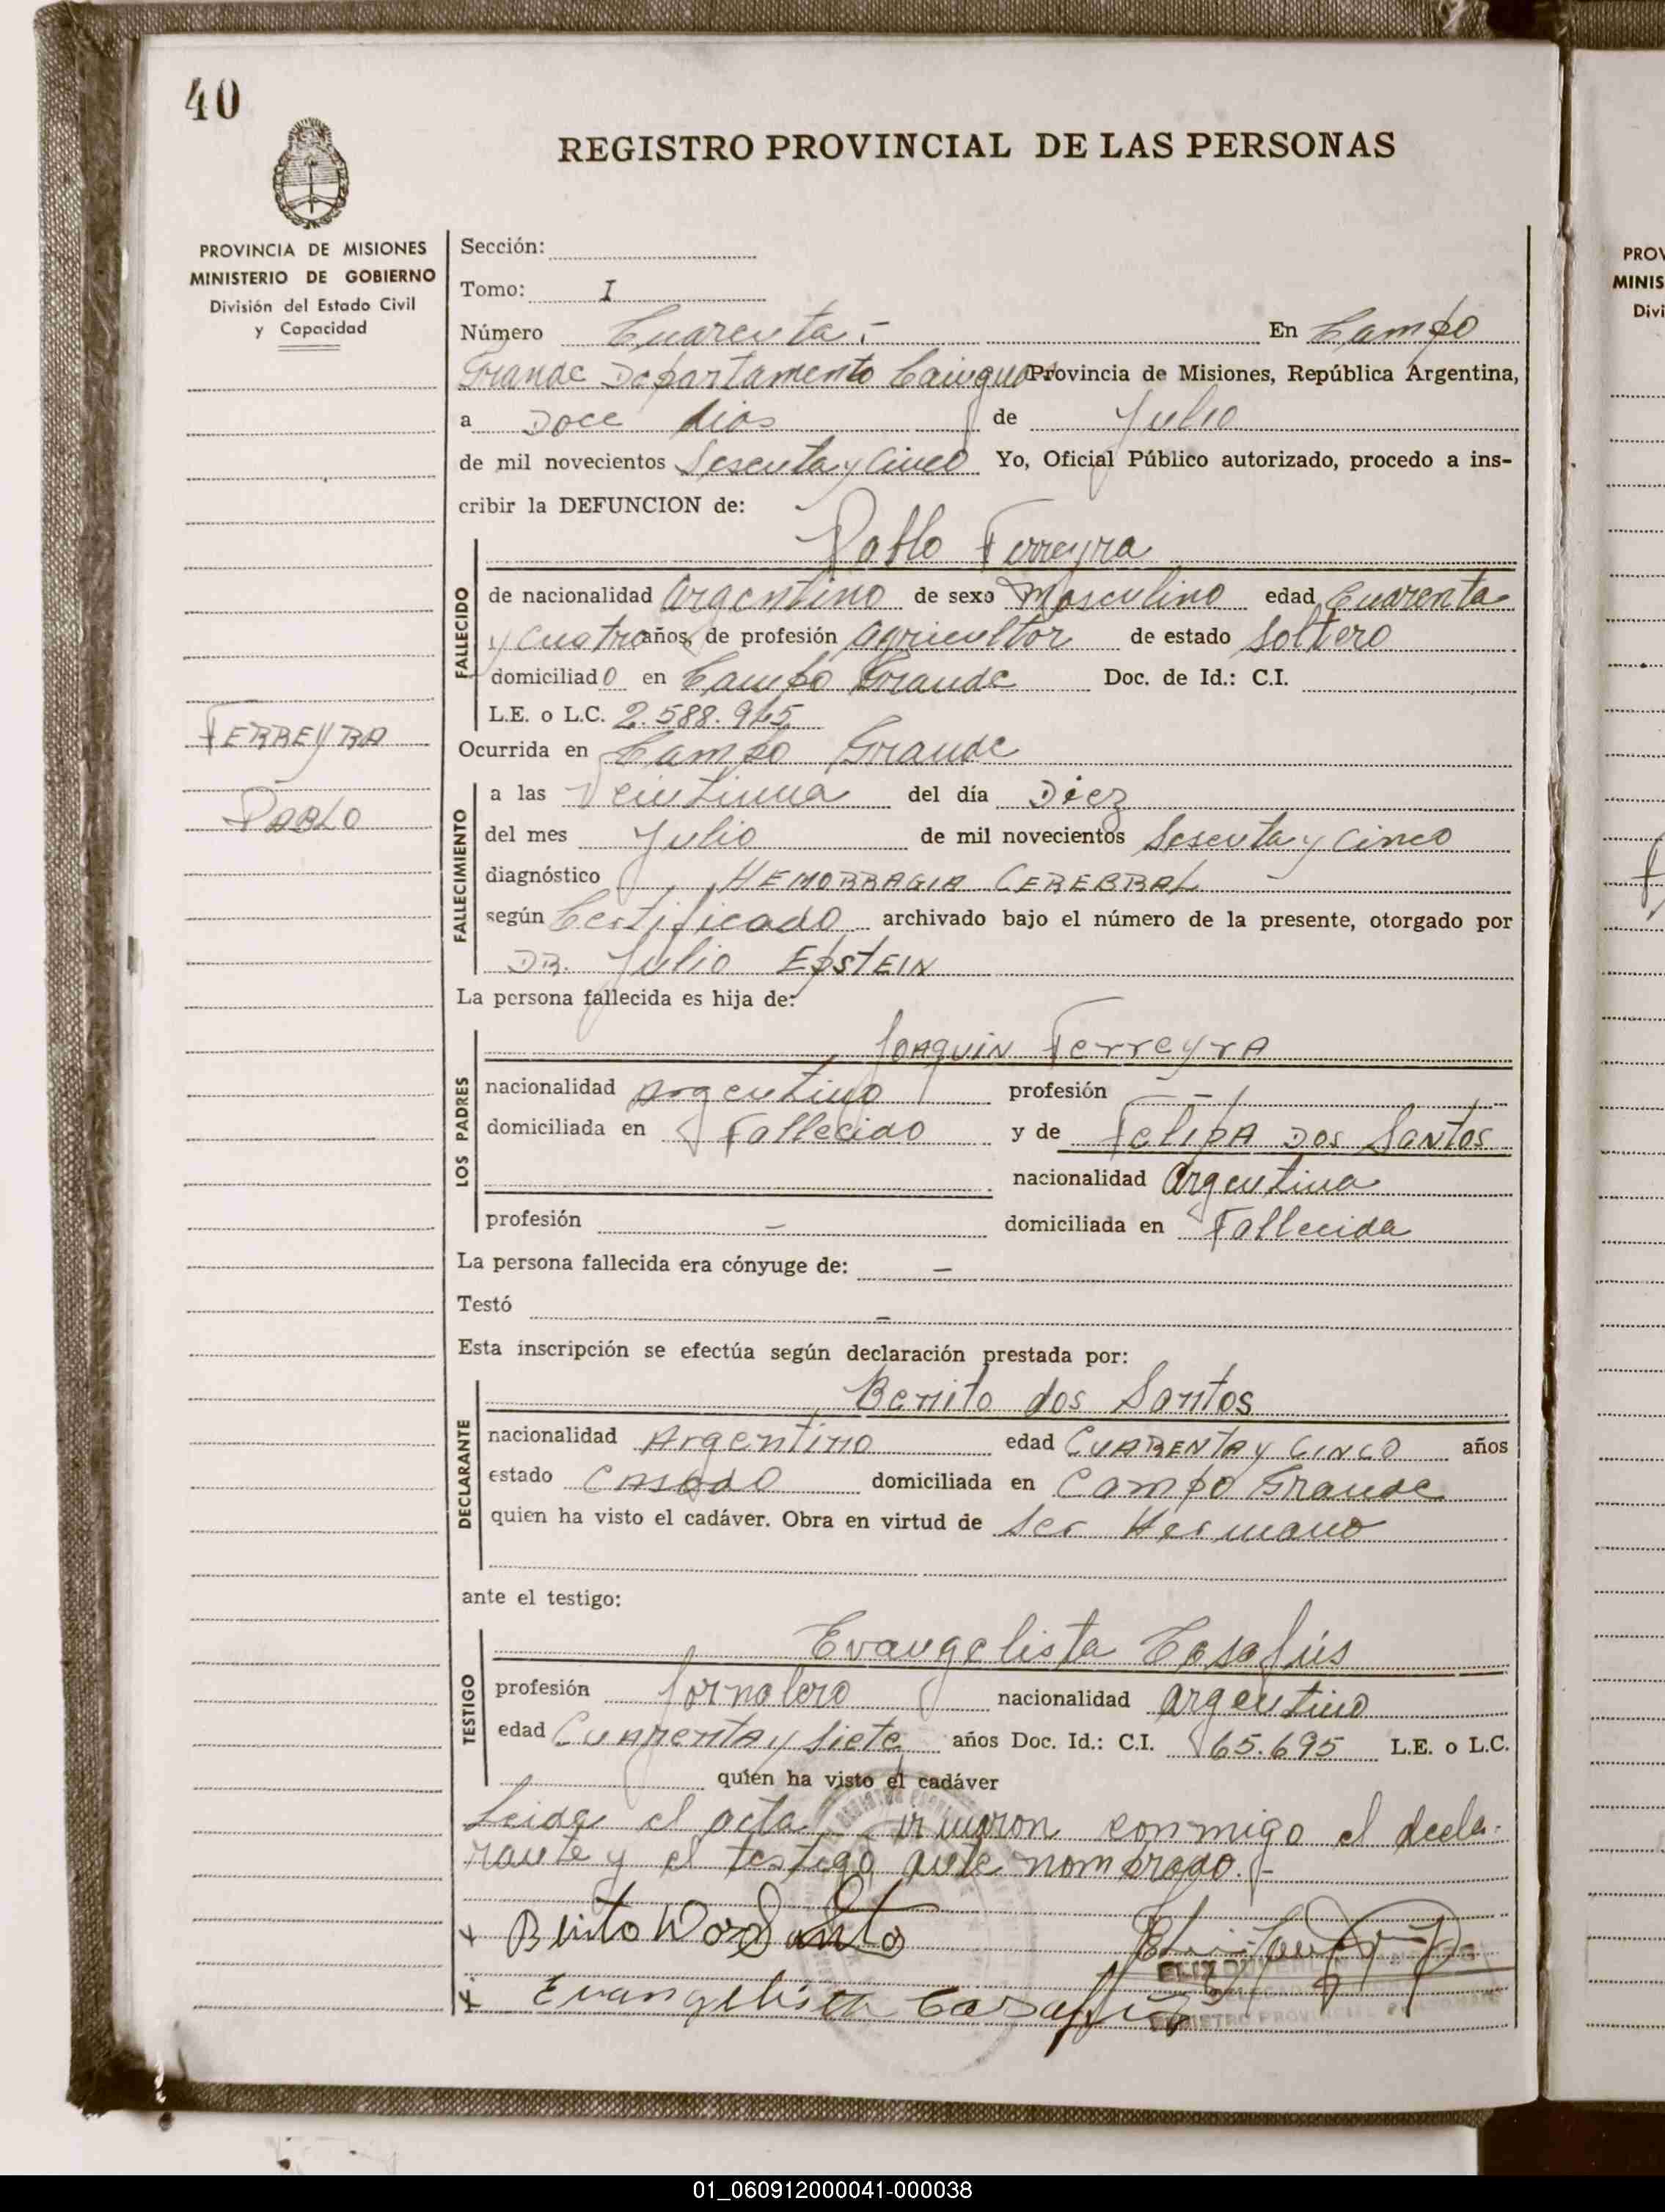 40
REGISTRO PROVINCIAL DE LAS PERSONAS
PROVINCIA DE MISIONES
MINISTERIO DE GOBIERNO
División del Estado Civil
y Capacidad
FERREYRA
PABLO
Sección:
Tomo: I
Número Cuarenta.- En Campo
Grande Departamento Cainguás Provincia de Misiones, República Argentina,
a Doce dias de Julio
de mil novecientos Sesenta y Cinco Yo, Oficial Público autorizado, procedo a ins-
cribir la DEFUNCION de:
Pablo Ferreyra
FALLECIDO
de nacionalidad Argentino de sexo Masculino edad Cuarenta
y cuatro años, de profesión agricultor de estado Soltero
domiciliado en Campo Grande Doc. de Id.: C.I.
L.E. o L.C. 2.588.945
Ocurrida en Campo Grande
FALLECIMIENTO
a las Veintiuna del día Diez
del mes Julio de mil novecientos Sesenta y Cinco
diagnóstico HEMORRAGIA CEREBRAL
según Certificado archivado bajo el número de la presente, otorgado por
DR. Julio EPSTEIN
La persona fallecida es hija de:
LOS PADRES
JOAQUIN Ferreyra
nacionalidad Argentino profesión -
domiciliada en Fallecido y de Felipa Dos Santos
nacionalidad Argentina
profesión - domiciliada en Fallecida
La persona fallecida era cónyuge de: -
Testó -
Esta inscripción se efectúa según declaración prestada por:
DECLARANTE
Benito dos Santos
nacionalidad Argentino edad CUARENTA y CINCO años
estado CASADO domiciliada en Campo Grande
quien ha visto el cadáver. Obra en virtud de ser Hermano
ante el testigo:
TESTIGO
Evangelista Casafús
profesión Jornalero nacionalidad argentino
edad Cuarenta y Siete años Doc. Id.: C.I. 65.695 L.E. o L.C.
quien ha visto el cadáver
Leida el acta firmaron conmigo el decla-
rante y el testigo ante nombrado.-
x Benito Dos Santos
x Evangelista Casafus
REGISTRO PROVINCIAL
PROV
MINIS
Divi
01_060912000041-000038